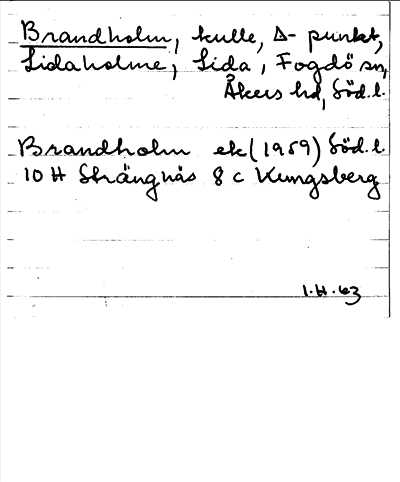 Brandholm, kulle, Δ-punkt,
Lidaholme, Lida, Fogdö sn,
Åkers hd, Söd.l.
Brandholm ek (1959) Söd.l.
10 H Strängnäs 8 c Kungsberg
I.H.63